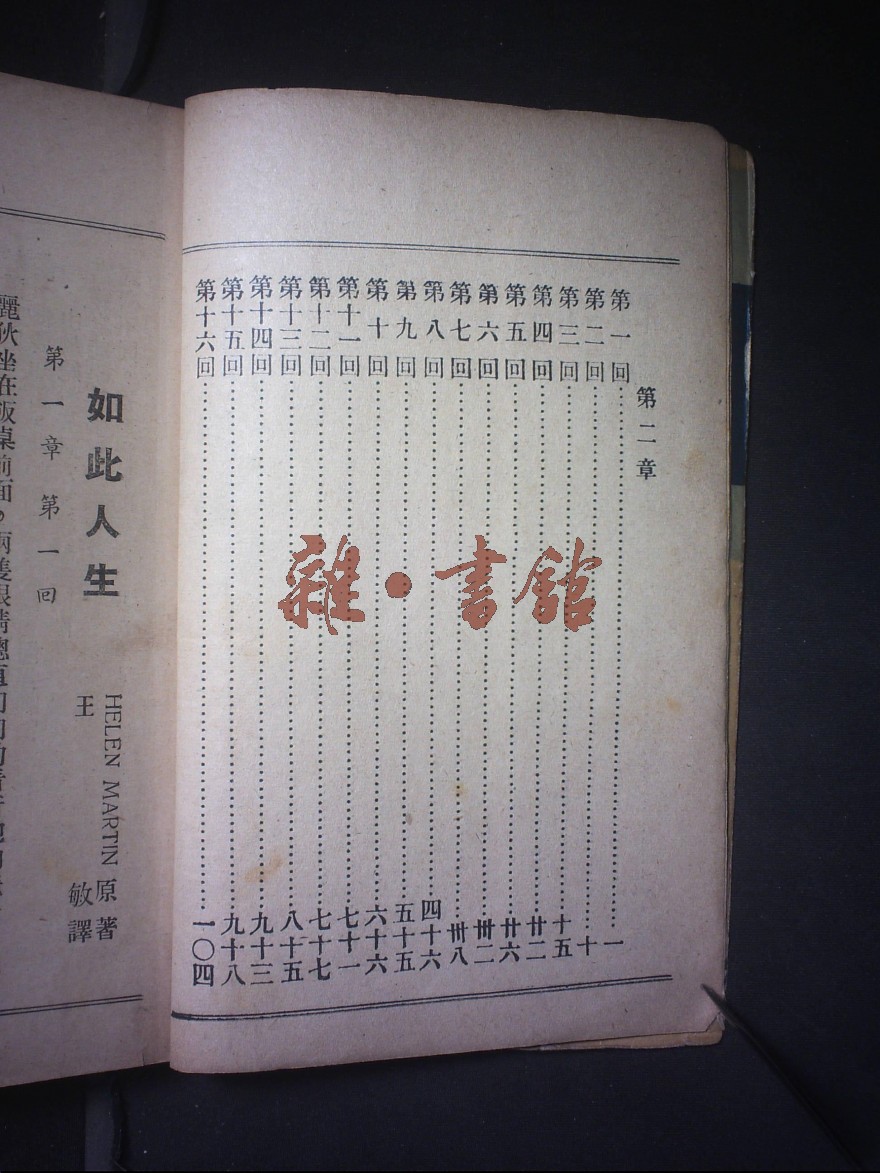 第二章
第一回……一
第二回……十
第三回……十五
第四回……廿二
第五回……廿六
第六回……卅二
第七回……卅八
第八回……四十六
第九回……五十五
第十回……六十六
第十一回……七十一
第十二回……七十七
第十三回……八十五
第十四回……九十三
第十五回……九十八
第十六回……一〇四
雜·書館
如此人生
HELEN MARTIN 原著
王敏譯
第一章 第一回
麗狄坐在飯桌前面，兩隻眼睛總直